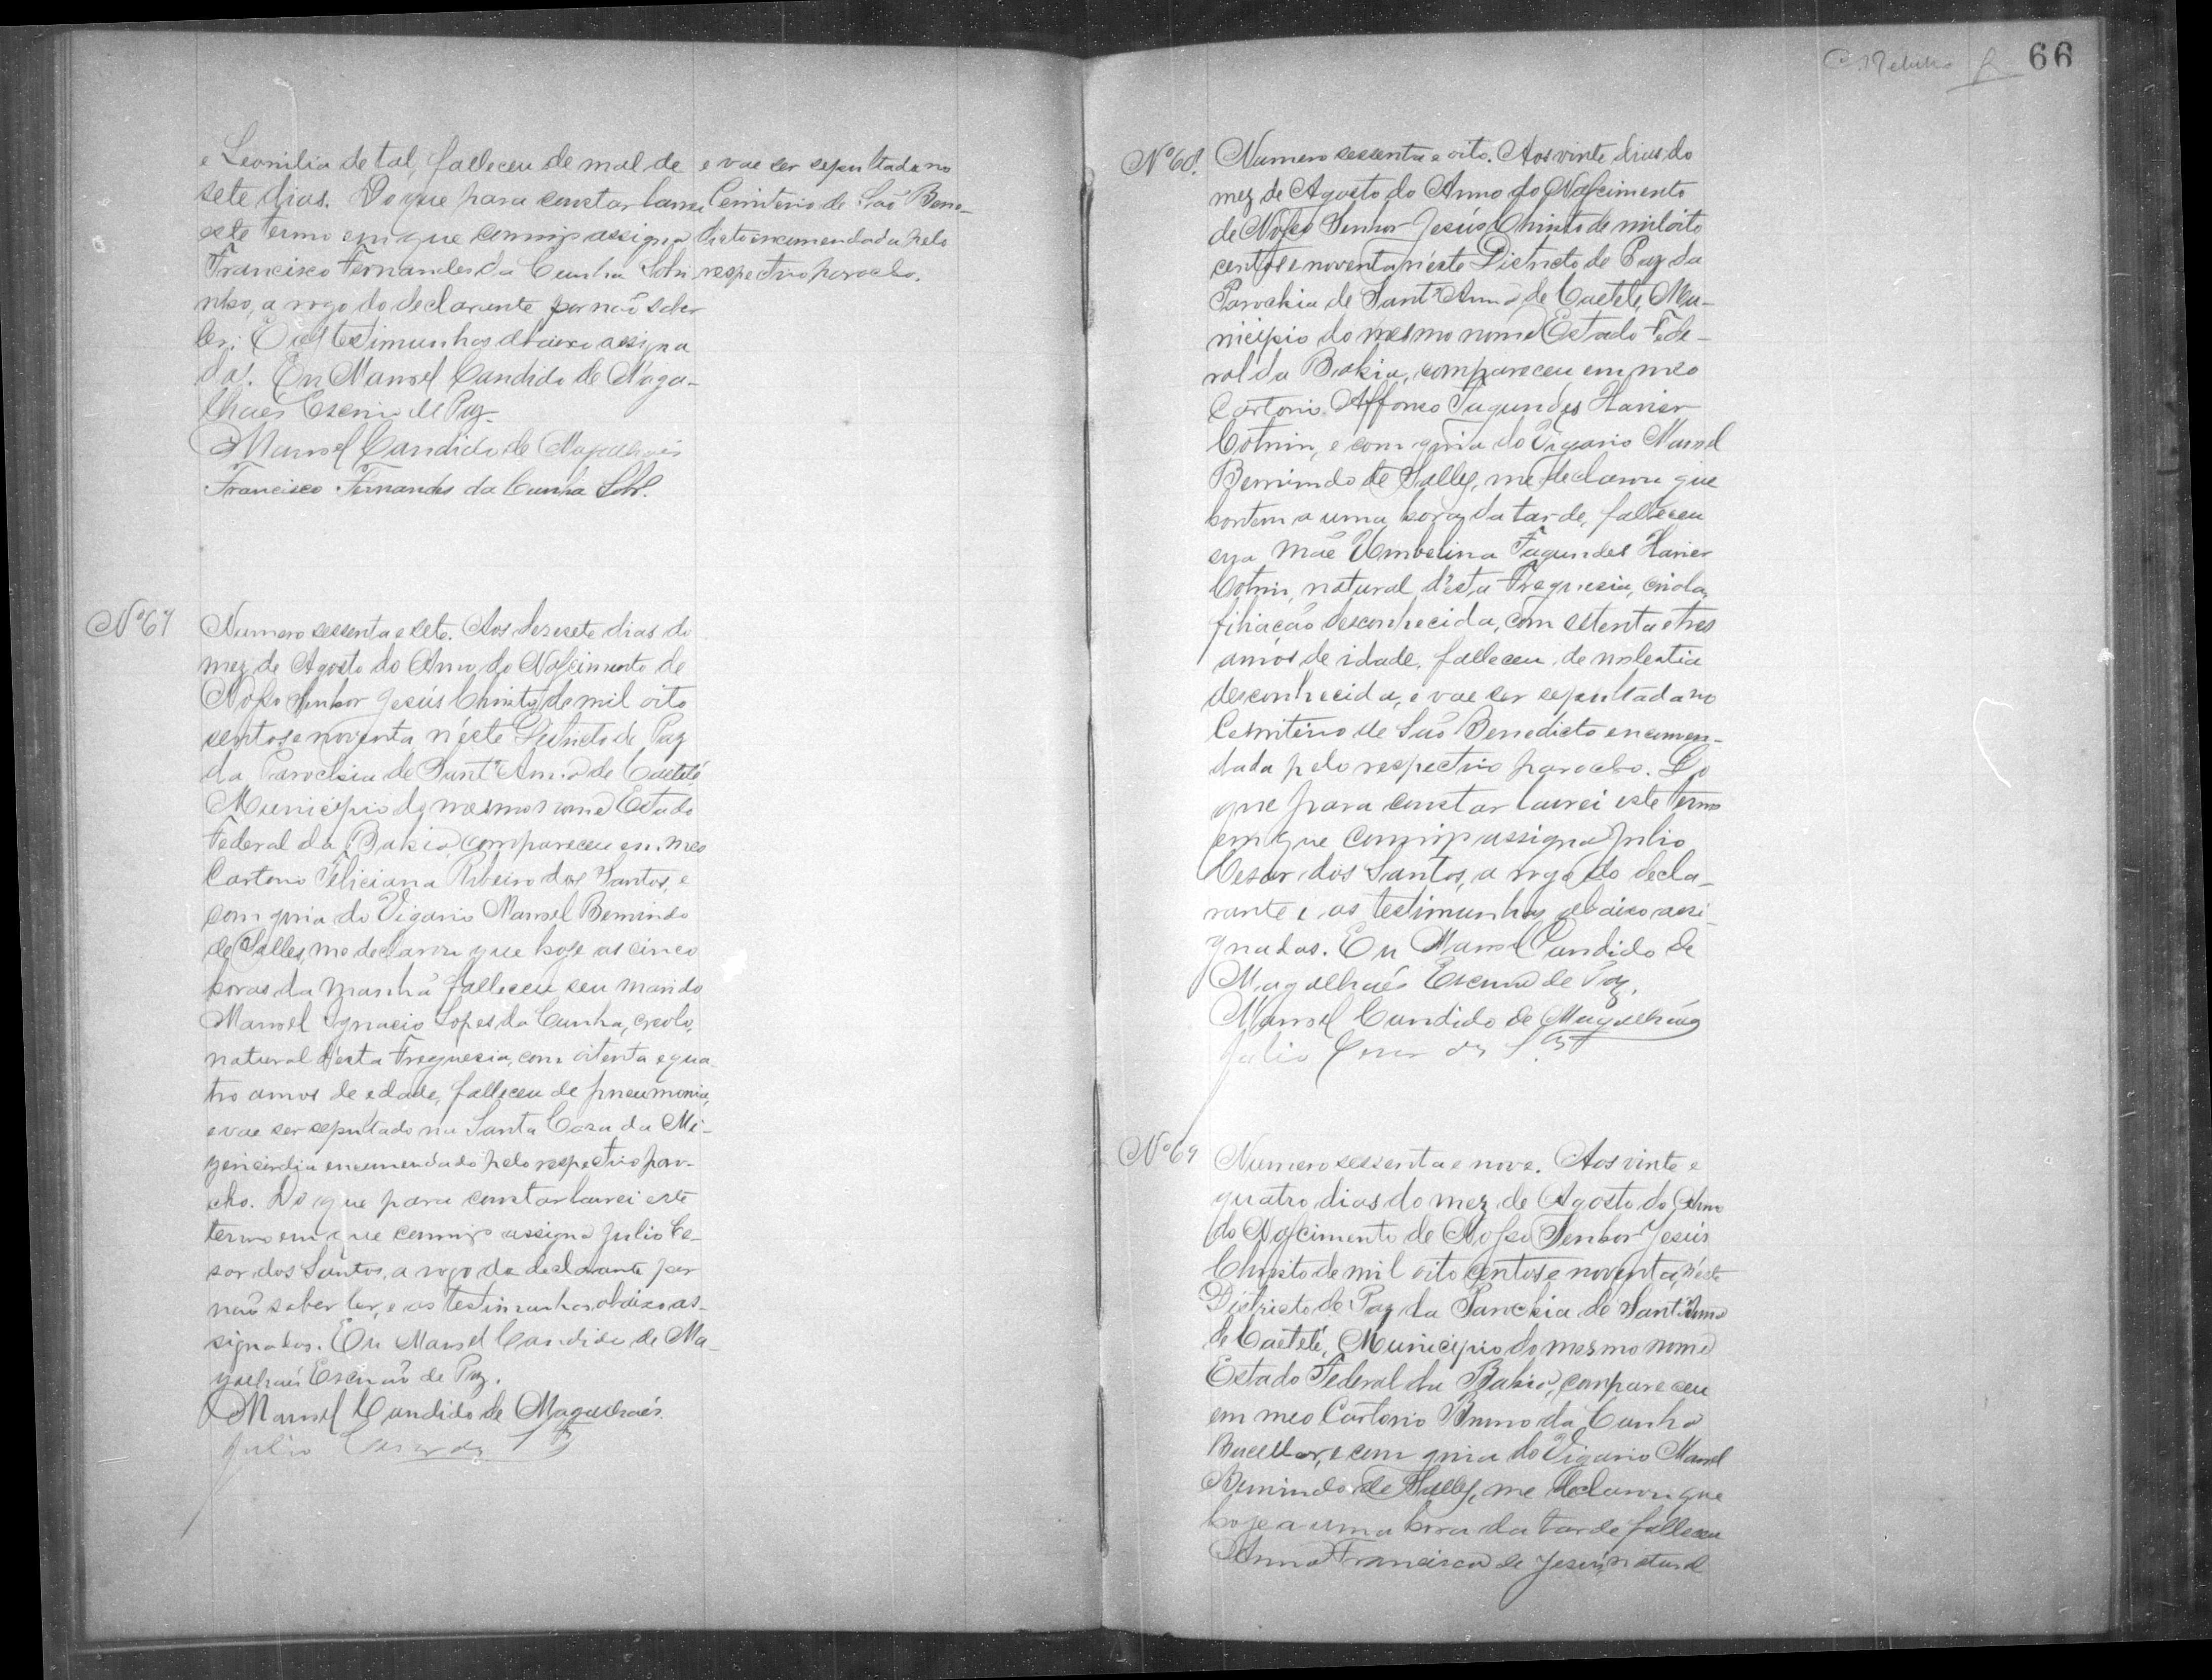 e Leonilia de tal, falleceu de mal de
sete dias. Do que para constar lavrei
este termo em que comigo assigna
Francisco Fernandes da Cunha Sobri
nho, a rogo do declarante por não saber
ler; E as testimunhas abaixo assigna
das. Eu Manoel Candido de Maga-
lhaês Escrivão de Paz
Manoel Candido de Magalhaês
Francisco Fernandes da Cunha Sobr.
e vae ser sepultada no
Cemiterio de São Bene-
dicto encomendada pelo
respectivo parocho.
Nº 67
Numero sessenta e sete. Aos dezesete dias do
mez de Agosto do Anno do Nascimento de
Nosso Senhor Jesús Christo de mil oito
centos e noventa n'éste Districto de Paz
da Parochia de Sant'Anna de Caeteté
Municipio do mesmo nome Estado
Federal da Bahia, compareceu em meo
Cartorio Feliciana Ribeiro dos Santos, e
com guia do Vigario Manoel Bemindo
de Salles, me declarou que hoje as cinco
horas da manhã falleceu seu marido
Manoel Ignacio Lopes da Cunha, creolo,
natural d'esta Freguesia, com oitenta e qua-
tro annos de edade, falleceu de pneumonia,
e vae ser sepultado na Santa Casa da Mi-
zericordia encomendado pelo respectivo paro-
cho. Do que para constar lavrei este
termo em que comigo assigna Julio Ce-
sar dos Santos, a rogo da declarante por
não saber ler, e as testimunhas abaixo as-
signadas. Eu Manoel Candido de Ma-
galhaês Escrivão de Paz.
Manoel Candido de Magalhaês
Julio Cesar dos Stos
66
Nº 68.
Numero sessenta e oito. Aos vinte dias do
mez de Agosto do Anno do Nascimento
de Nosso Senhor Jesús Christo de mil oito
centos e noventa n'éste Districto de Paz da
Parochia de Sant'Anna de Caeteté, Mu-
nicipio do mesmo nome Estado Fede-
ral da Bahia, compareceu em meo
Cartorio Affonso Fagundes Xavier
Cotrim, e com guia do Vigario Manoel
Bemindo de Salles, me declarou que
hontem a uma hora da tarde, falleceu
sua mãe Umbelina Fagundes Xavier
Cotrim, natural d'esta Freguesia, criola,
filiação desconhecida, com setenta e tres
annos de idade, falleceu de molestia
desconhecida, e vae ser sepultada no
Cemiterio de São Benedicto encomen-
dada pelo respectivo parocho. Do
que para constar lavrei este termo
em que comigo assigna Julio
Cesar dos Santos, a rogo do decla-
rante e as testimunhas abaixo assi-
gnadas. Eu Manoel Candido de
Magalhaês Escrivão de Paz.
Manoel Candido de Magalhaês
Julio Cesar dos Stos
Nº 69
Numero sessenta e nove. Aos vinte e
quatro dias do mez de Agosto do Anno
do Nascimento de Nosso Senhor Jesús
Christo de mil oito centos e noventa, n'éste
Districto de Paz da Parochia de Sant'Anna
de Caeteté, Municipio do mesmo nome
Estado Federal da Bahia, compareceu
em meo Cartorio Bruno da Cunha
Bacellar, e com guia do Vigario Manoel
Bemindo de Salles, me declarou que
hoje a uma hora da tarde falleceu
Anna Francisca de Jesús, natural